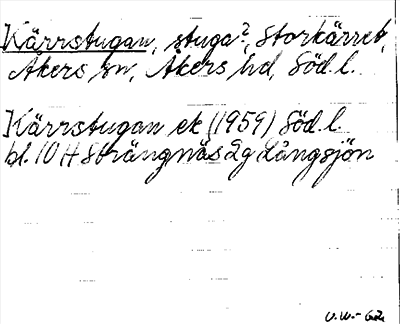 Kärrstugan, stuga?, Storkärret,
Åkers sn, Åkers hd, Söd. l.
Kärrstugan ek (1959) Söd. l.
bl. 10 H Strängnäs 2g Långsjön